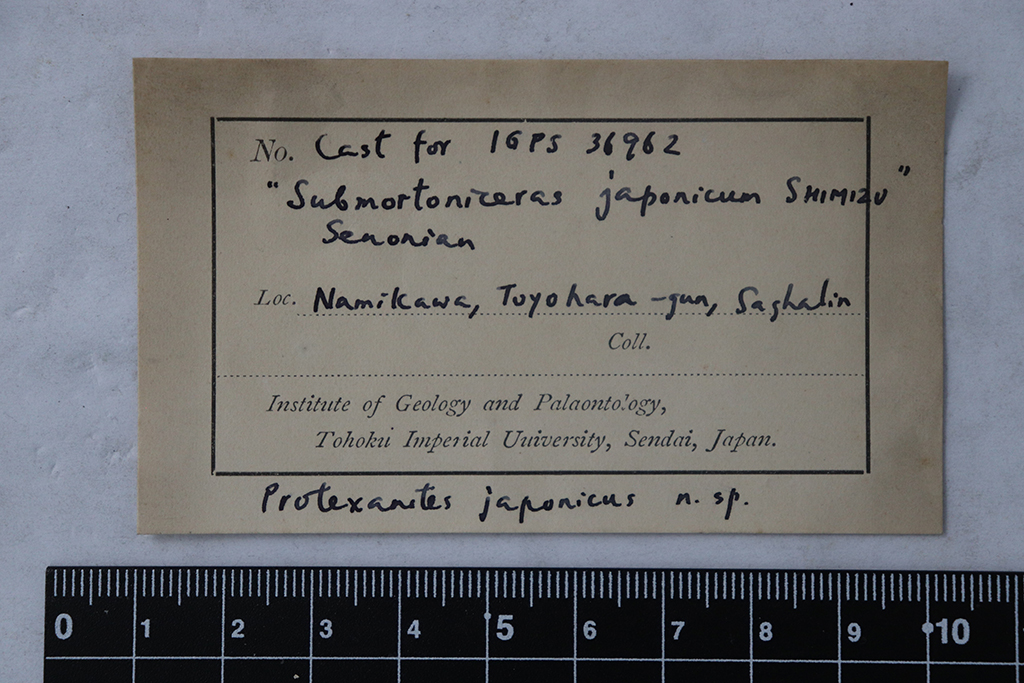 No. Cast for IGPS 36962
"Submortoniceras japonicum SHIMIZU"
Senonian
Loc. Namikawa, Toyohara-gun, Saghalin
Coll.
Institute of Geology and Palaontology,
Tohoku Imperial Uuiversity, Sendai, Japan.
Protexanites japonicus n. sp.
0 1 2 3 4 5 6 7 8 9 10